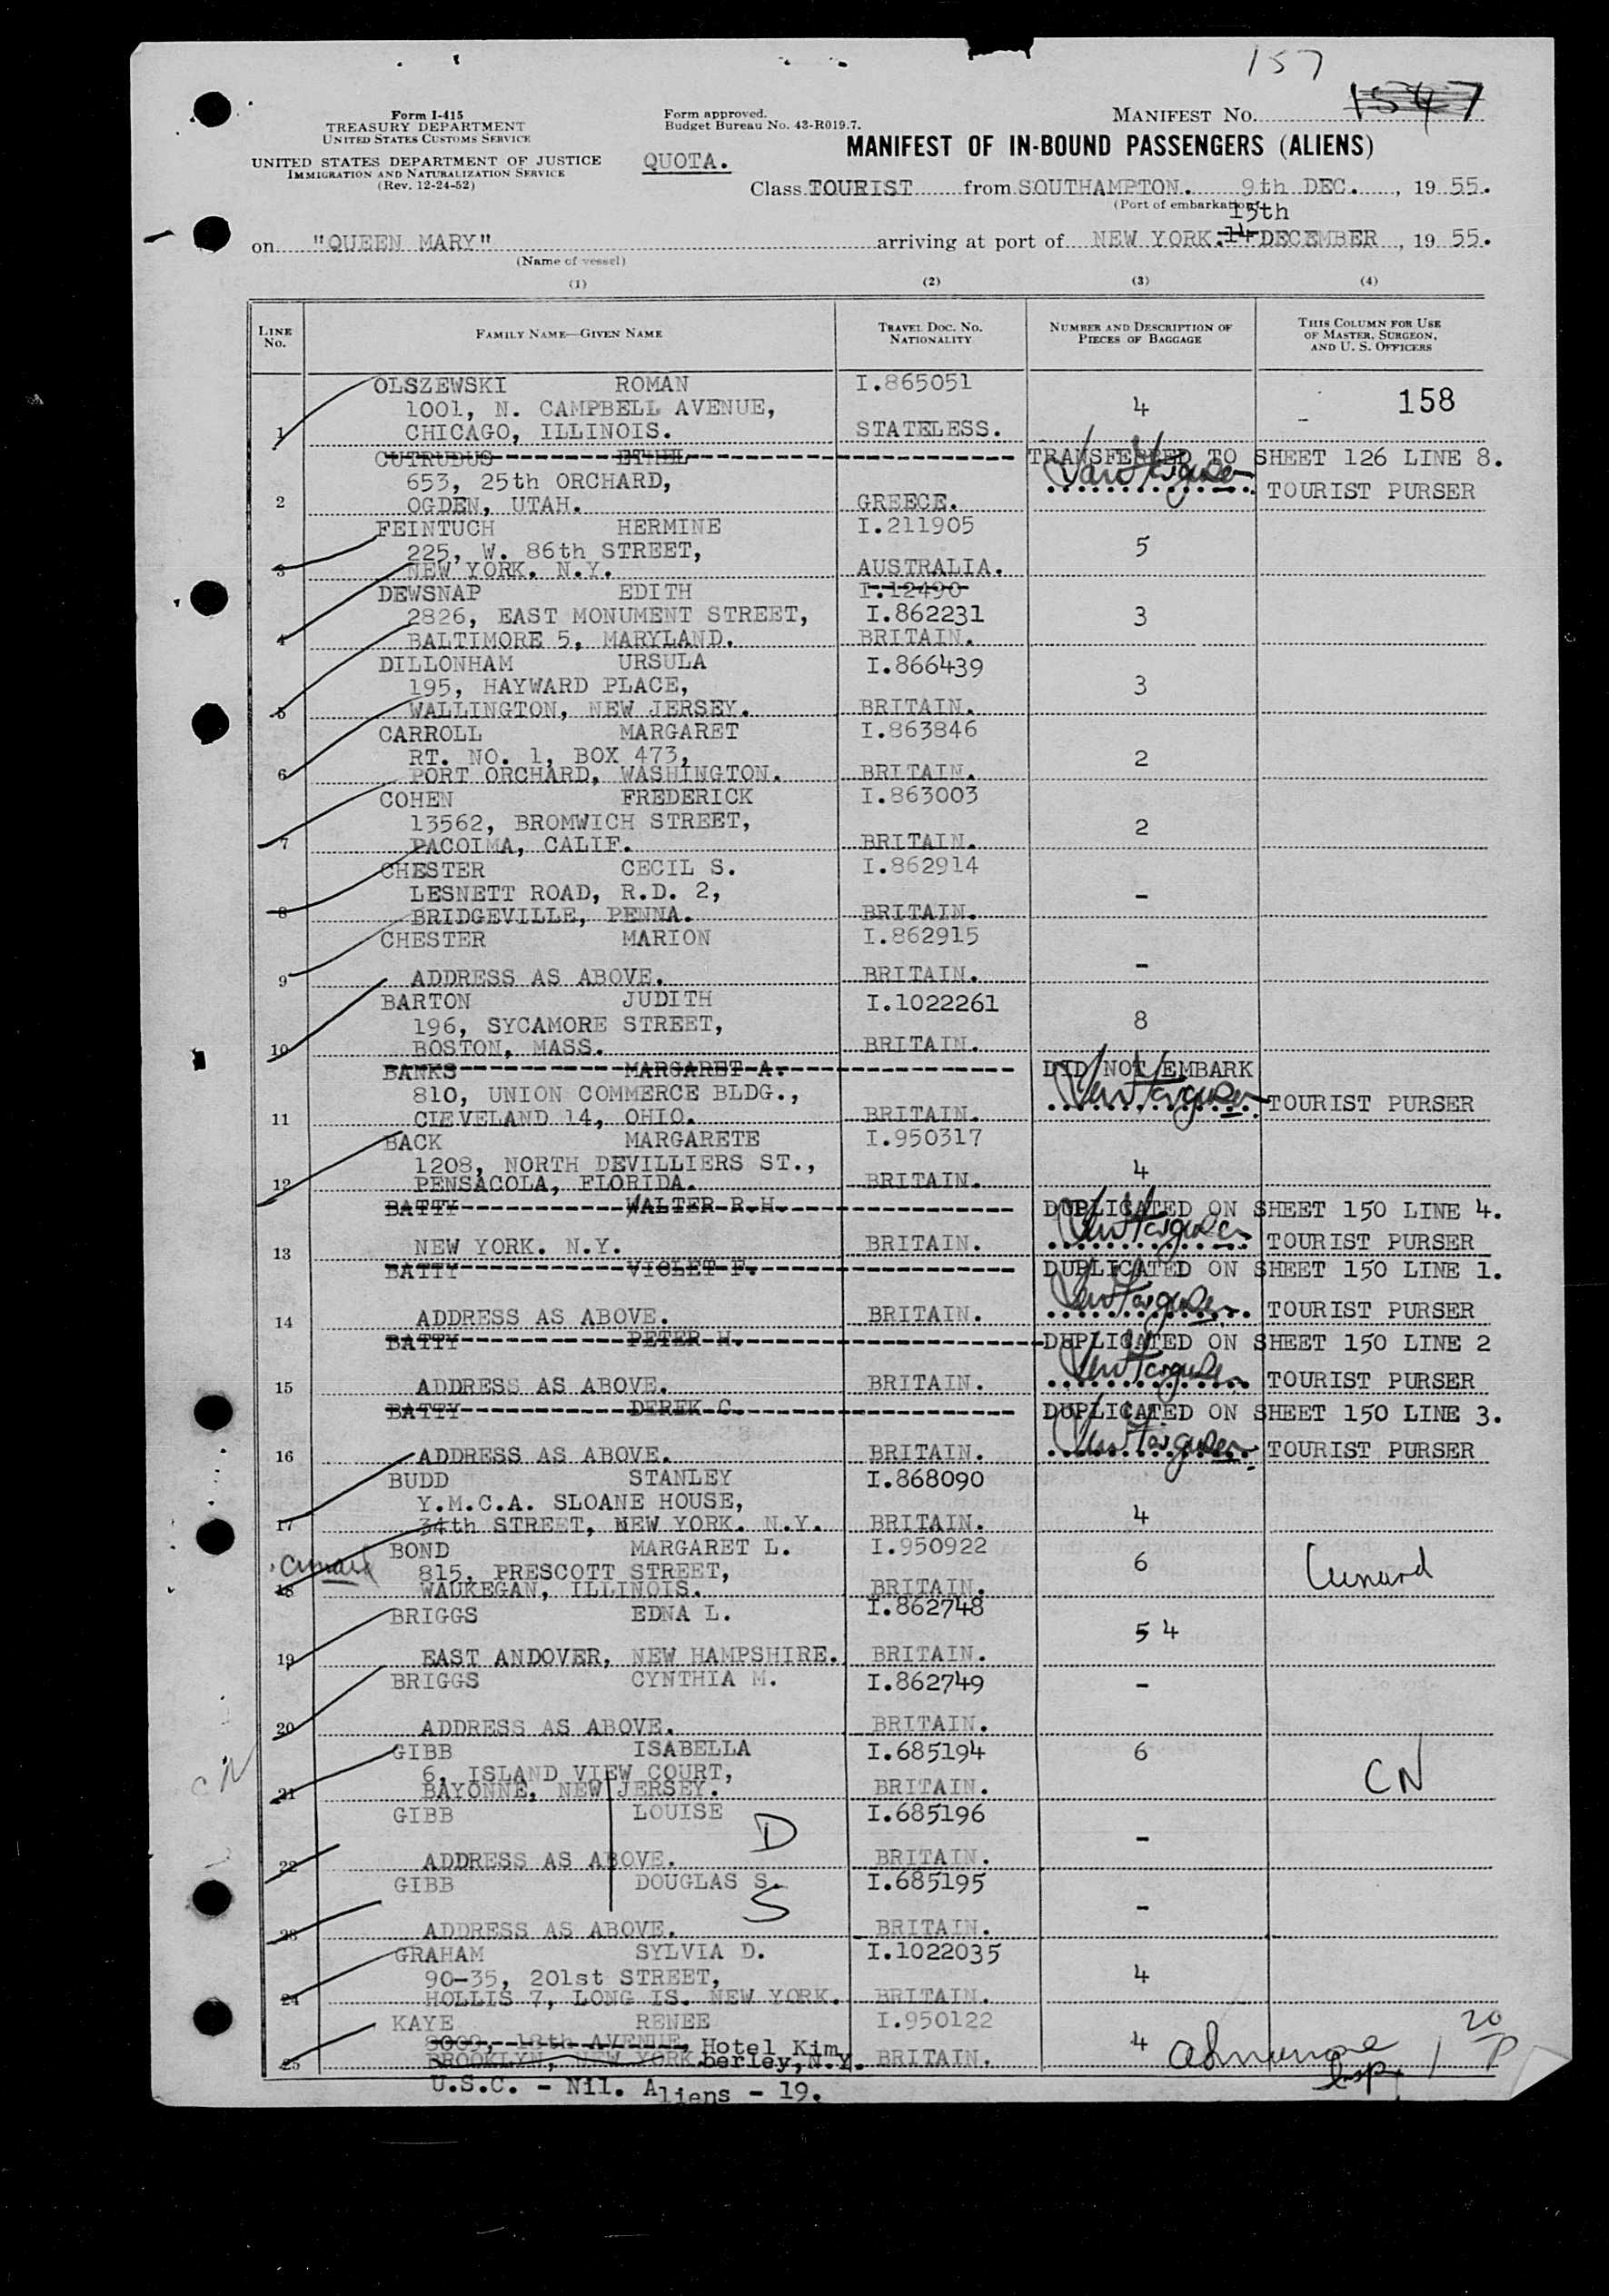 157
Form I-415
TREASURY DEPARTMENT
UNITED STATES CUSTOMS SERVICE
UNITED STATES DEPARTMENT OF JUSTICE
IMMIGRATION AND NATURALIZATION SERVICE
(Rev. 12-24-52)
Form approved.
Budget Bureau No. 43-R019.7.
QUOTA.
MANIFEST NO.
MANIFEST OF IN-BOUND PASSENGERS (ALIENS)
Class TOURIST from SOUTHAMPTON. 9th DEC., 19 55.
(Port of embarkation)
15th
on "QUEEN MARY" arriving at port of NEW YORK. 14 DECEMBER, 19 55.
(Name of vessel)
(1) (2) (3) (4)
LINE NO. FAMILY NAME—GIVEN NAME TRAVEL DOC. NO. NATIONALITY NUMBER AND DESCRIPTION OF PIECES OF BAGGAGE THIS COLUMN FOR USE OF MASTER, SURGEON, AND U. S. OFFICERS
OLSZEWSKI ROMAN I.865051
1001, N. CAMPBELL AVENUE, 4 158
1 CHICAGO, ILLINOIS. STATELESS.
CUTRUBUS ETHEL TRANSFERRED TO SHEET 126 LINE 8.
653, 25th ORCHARD, TOURIST PURSER
2 OGDEN, UTAH. GREECE.
FEINTUCH HERMINE I.211905
225, W. 86th STREET, 5
3 NEW YORK. N.Y. AUSTRALIA.
DEWSNAP EDITH I.12490
2826, EAST MONUMENT STREET, I.862231 3
4 BALTIMORE 5, MARYLAND. BRITAIN.
DILLONHAM URSULA I.866439
195, HAYWARD PLACE, 3
5 WALLINGTON, NEW JERSEY. BRITAIN.
CARROLL MARGARET I.863846
RT. NO. 1, BOX 473, 2
6 PORT ORCHARD, WASHINGTON. BRITAIN.
COHEN FREDERICK I.863003
13562, BROMWICH STREET, 2
7 PACOIMA, CALIF. BRITAIN.
CHESTER CECIL S. I.862914
LESNETT ROAD, R.D. 2, -
8 BRIDGEVILLE, PENNA. BRITAIN.
CHESTER MARION I.862915
-
9 ADDRESS AS ABOVE. BRITAIN.
BARTON JUDITH I.1022261
196, SYCAMORE STREET, 8
10 BOSTON, MASS. BRITAIN.
BANKS MARGARET A. DID NOT EMBARK
810, UNION COMMERCE BLDG., TOURIST PURSER
11 CLEVELAND 14, OHIO. BRITAIN.
BACK MARGARETE I.950317
1208, NORTH DEVILLIERS ST., 4
12 PENSACOLA, FLORIDA. BRITAIN.
BATTY WALTER R.H. DUPLICATED ON SHEET 150 LINE 4.
13 NEW YORK. N.Y. BRITAIN. TOURIST PURSER
BATTY VIOLET F. DUPLICATED ON SHEET 150 LINE 1.
14 ADDRESS AS ABOVE. BRITAIN. TOURIST PURSER
BATTY PETER H. DUPLICATED ON SHEET 150 LINE 2
15 ADDRESS AS ABOVE. BRITAIN. TOURIST PURSER
BATTY DEREK C. DUPLICATED ON SHEET 150 LINE 3.
16 ADDRESS AS ABOVE. BRITAIN. TOURIST PURSER
BUDD STANLEY I.868090
Y.M.C.A. SLOANE HOUSE, 4
17 34th STREET, NEW YORK. N.Y. BRITAIN.
BOND MARGARET L. I.950922
Cunard 815, PRESCOTT STREET, 6 Cunard
18 WAUKEGAN, ILLINOIS. BRITAIN.
BRIGGS EDNA L. I.862748
5 4
19 EAST ANDOVER, NEW HAMPSHIRE. BRITAIN.
BRIGGS CYNTHIA M. I.862749
-
20 ADDRESS AS ABOVE. BRITAIN.
GIBB ISABELLA I.685194 6
CN 6, ISLAND VIEW COURT, CN
21 BAYONNE, NEW JERSEY. BRITAIN.
GIBB LOUISE I.685196
D -
22 ADDRESS AS ABOVE. BRITAIN.
GIBB DOUGLAS S. I.685195
S -
23 ADDRESS AS ABOVE. BRITAIN.
GRAHAM SYLVIA D. I.1022035
90-35, 201st STREET, 4
24 HOLLIS 7, LONG IS. NEW YORK. BRITAIN.
KAYE RENEE I.950122
8009, 18th AVENUE, Hotel Kim 4 20
25 BROOKLYN, NEW YORK berley, N.Y. BRITAIN. P
U.S.C. - Nil. Aliens - 19. Insp